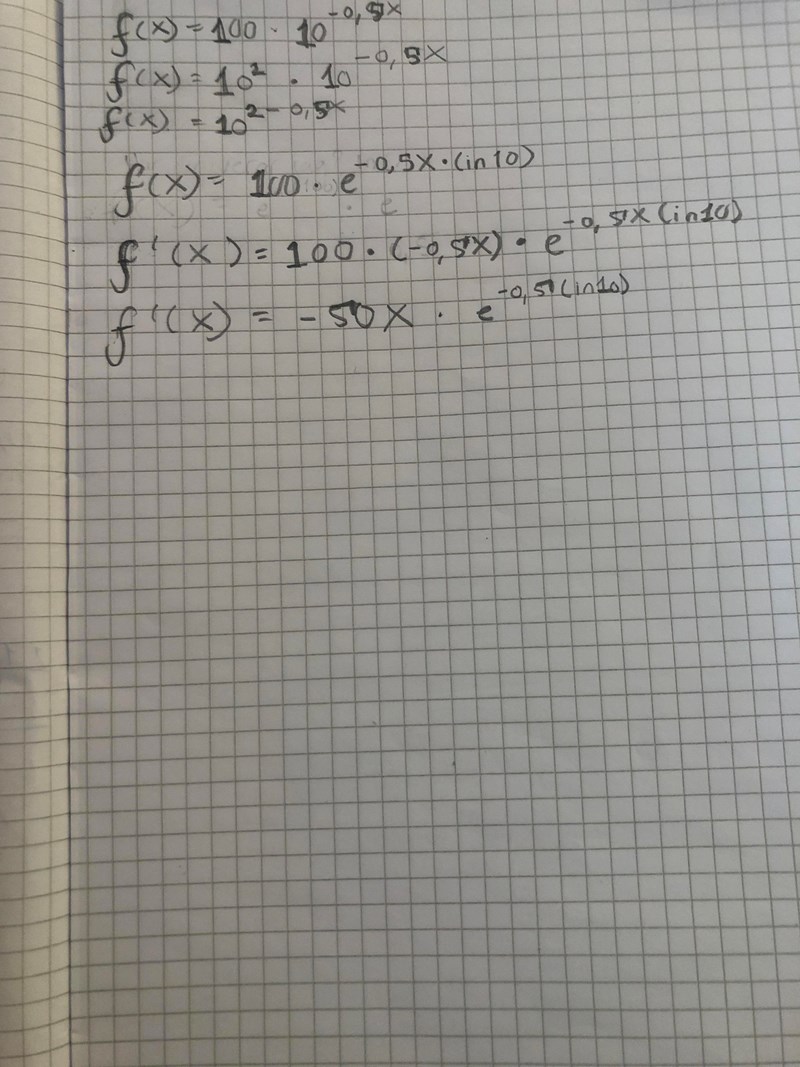 f(x) = 100 · 10^-0,5x
f(x) = 10² · 10^-0,5x
f(x) = 10^2-0,5x
f(x) = 100 · e^-0,5x·(in10)
f'(x) = 100 · (-0,5x) · e^-0,5x(in10)
f'(x) = -50x · e^-0,5(in10)